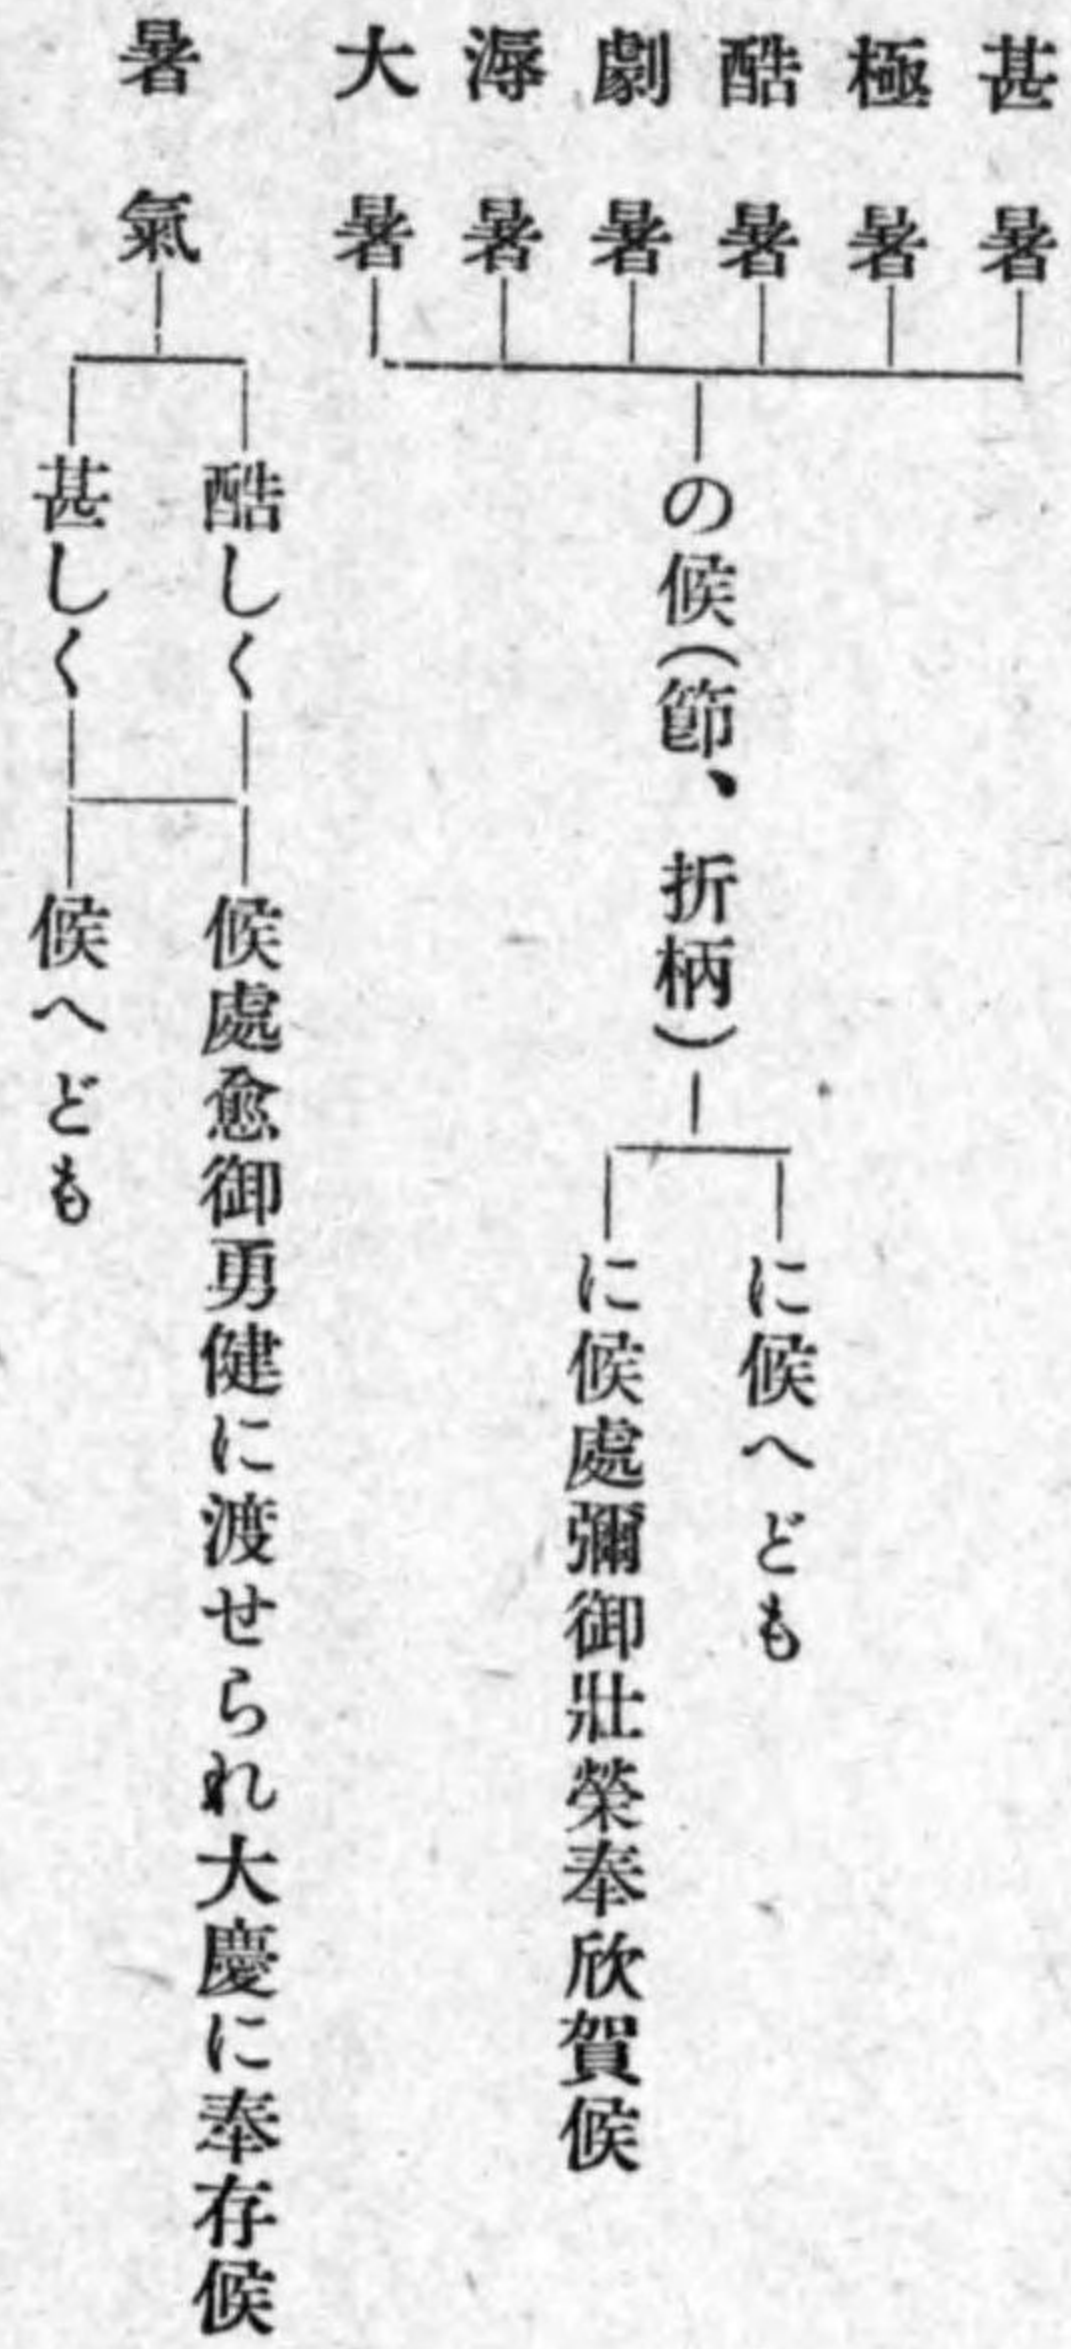 甚暑
極暑
酷暑
劇暑
溽暑
大暑
の候(節、折柄)
に候へども
に候處彌御壯榮奉欣賀候
暑氣
酷しく
甚しく
候處愈御勇健に渡せられ大慶に奉存候
候へども